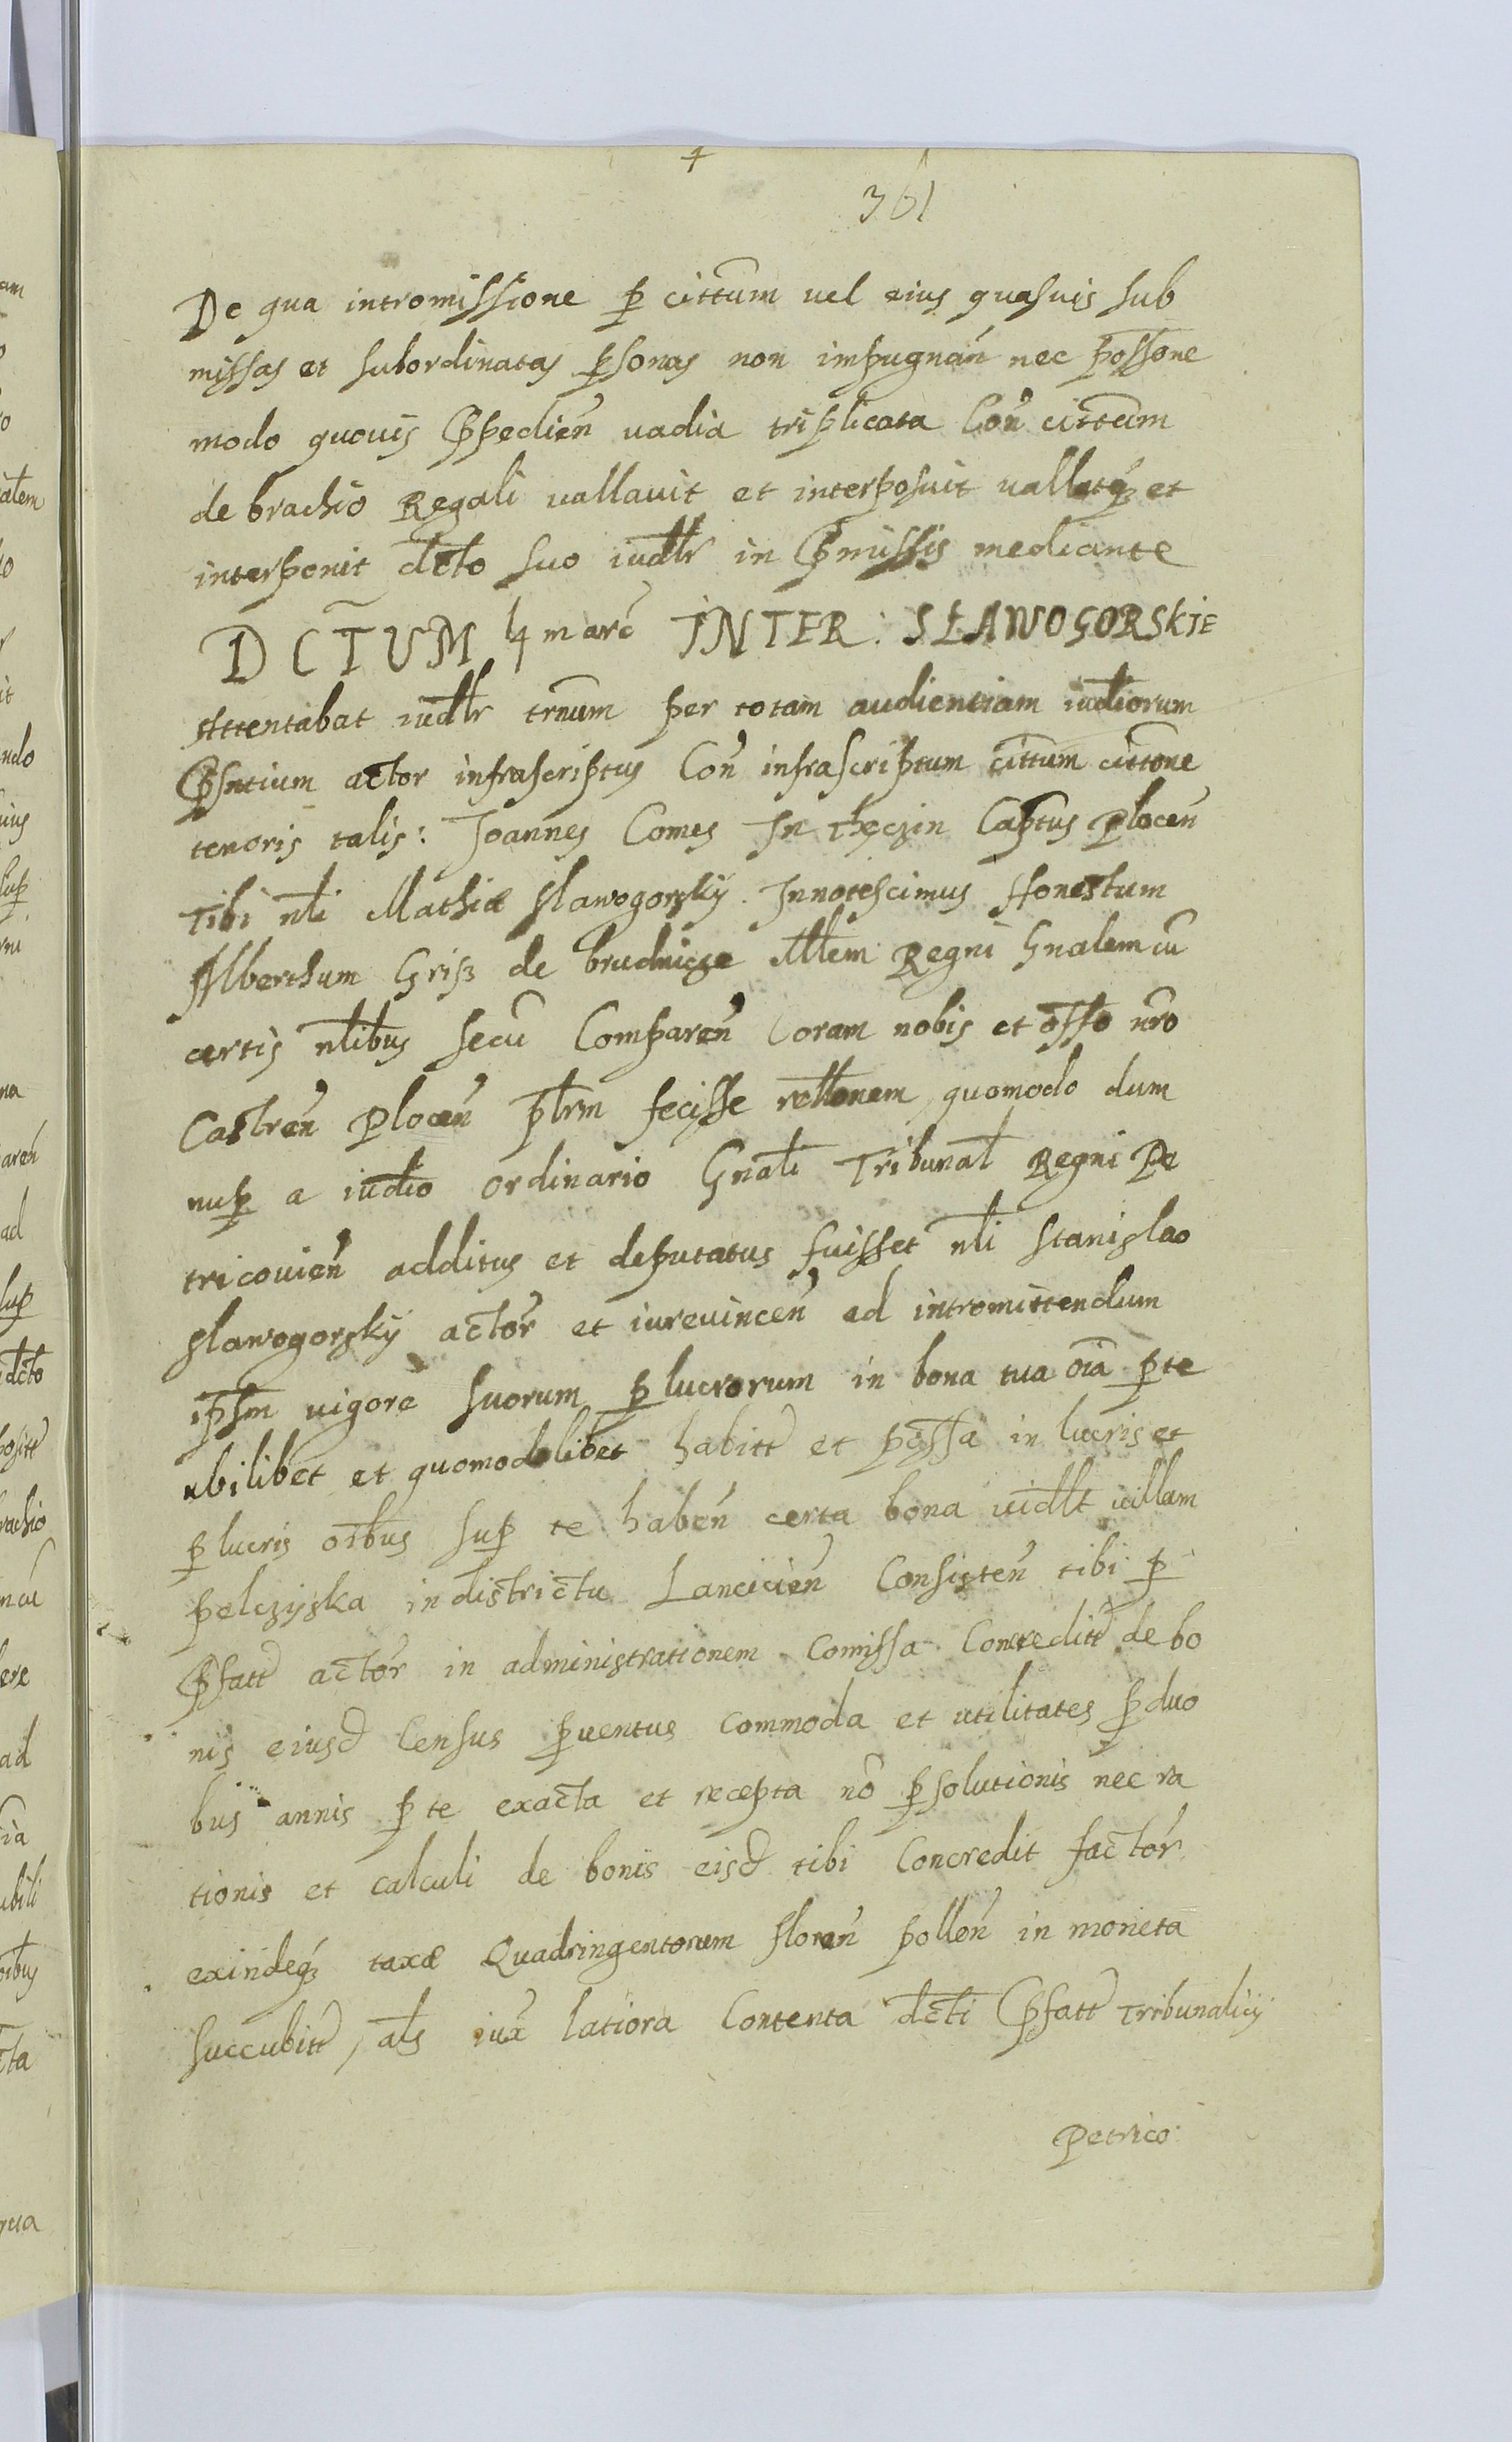 361
De qua intromissione p̱ cittum̃ uel eius quasuis sub
missas et subordinatas p̱sonas non impugnan̄ nec possone
modo quouis p̄pedien̄ uadia triplicata Con̄ cittum̃
de brachio Regali uallauit et interposuit uallatq₃ et
interponit dcto suo iudlr in p̄missis mediante
DCTUM 4 marc̄ INTER: SŁAWOGORSKIE
Attentabat iudlr trnum per totam audientiam iudiorum
p̄sntium actor infrascriptus Con̄ infrascriptum cittum cittone
tenoris talis: Joannes Comes In Theczin Captus Plocen̄
Tibi nli Mathiæ Slawogorsky. Innotescimus Honestum
Alberthum Grisz de brudnicze Mtlem Regni Gnalem cū
certis nlibus secū Comparen̄ Coram nobis et offo nro
Castren̄ Plocen̄ pt̄rm fecisse rellonem, quomodo dum
nup̱ a iudio ordinario Gnali Tribunal Regni Pe
tricouien̄ additus et deputatus fuisset nli Stanislao
Slawogorsky actor̄ et iureuincen̄ ad intromittendum
ipsm uigore suorum p̱lucrorum in bona tua oīa p̱ te
ubilibet et quomodolibet habitt et possa in lucris et
p̱lucris oībus sup̱ te haben̄ certa bona uidlt uillam
pelczyska in districtu Lancicien̄ Consisten̄ tibi p̱
p̄fatt actor̄ in administrationem Comissa Concreditt de bo
nis eiusd Census p̱uentus commoda et utilitates p̱ duo
bus annis p̱ te exacta et recepta nō p̱solutionis nec ra
tionis et calculi de bonis eisd tibi Concredit factor̄
exindeq₃ taxæ Quadringentorum floren̄ pollon̄ in moneta
succubitt, als iux̄ latiora Contenta dcti p̄fatt Tribunalicij
Petrico